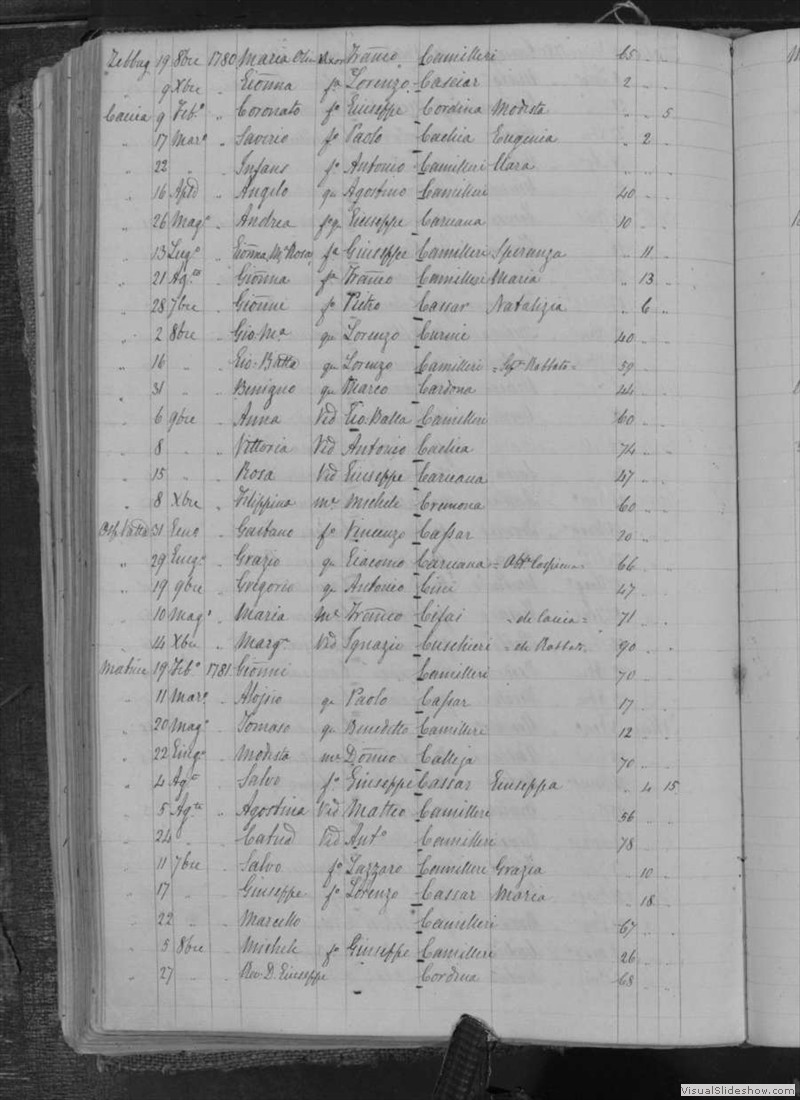 Zebbug 19 8bre 1780 Maria Oliva Uxor Franco Camilleri 65 ..
" 9 Xbre " Gionna fa Lorenzo Casciar 2 ..
Cacia 9 Feb.o " Coronato fo Giuseppe Cordina Modista " .. 5
" 17 Mar.o " Saverio fo Paolo Cachia Eugenia " 2 ..
" 22 " " Infans fo Antonio Camilleri Clara
" 16 Aple " Angelo qu Agostino Camilleri 40 ..
" 26 Mag.o " Andrea fo qu Giuseppe Caruana 10 ..
" 13 Lug.o " Gionna Ma Rosa fa Giuseppe Camilleri Speranza " 11 ..
" 21 Ag.to " Gionna fa Franco Camilleri Maria " 13 ..
" 28 7bre " Gionni fo Pietro Cassar Natalizia " 6 ..
" 2 8bre " Gio. Ma qu Lorenzo Curmi 40 ..
" 16 " " Gio. Batta qu Lorenzo Camilleri Rabbato 59 ..
" 31 " " Benigno qu Marco Cardona 44 ..
" 6 9bre " Anna Vid Gio. Batta Camilleri 60 ..
" 8 " " Vittoria Vid Antonio Cachia 74 ..
" 15 " " Rosa Vid Giuseppe Caruana 47 ..
" 8 Xbre " Filippina mr Michele Cremona 60 ..
Osp. Vallta 31 Geno " Gaetano fo Vincenzo Cassar 20 ..
" 29 Giug.o " Grazio qu Giacomo Caruana 66 ..
" 19 9bre " Gregorio qu Antonio Cini 47 ..
" 10 Mag.o " Maria mr Franco Cifai - de Cacia - 71 ..
" 14 Xbre " Marg.a Vid Ignazio Cuschieri - de Rabbato - 90 ..
Matrice 19 Feb.o 1781 Gionni Camilleri 70 ..
" 11 Mar.o " Aloisio qu Paolo Cassar 17 ..
" 20 Mag.o " Tomaso qu Benedetto Camilleri 12 ..
" 22 Giug.o " Modista mr Domco Calleja 70 ..
" 4 Ag.to " Salvo fo Giuseppe Cassar Giuseppa " 4 15
" 5 Ag.to " Agostina Vid Matteo Camilleri 56 ..
" 24 " " Catnd Vid Anto Camilleri 78 ..
" 11 7bre " Salvo fo Lazzaro Camilleri Grazia " 10 ..
" 17 " " Giuseppe fo Lorenzo Cassar Maria " 18 ..
" 22 " " Marcello Camilleri 67 ..
" 5 8bre " Michele fo Giuseppe Camilleri 26 ..
" 27 " Rev. D. Giuseppe Cordina 68 ..
VisualSlideshow.com